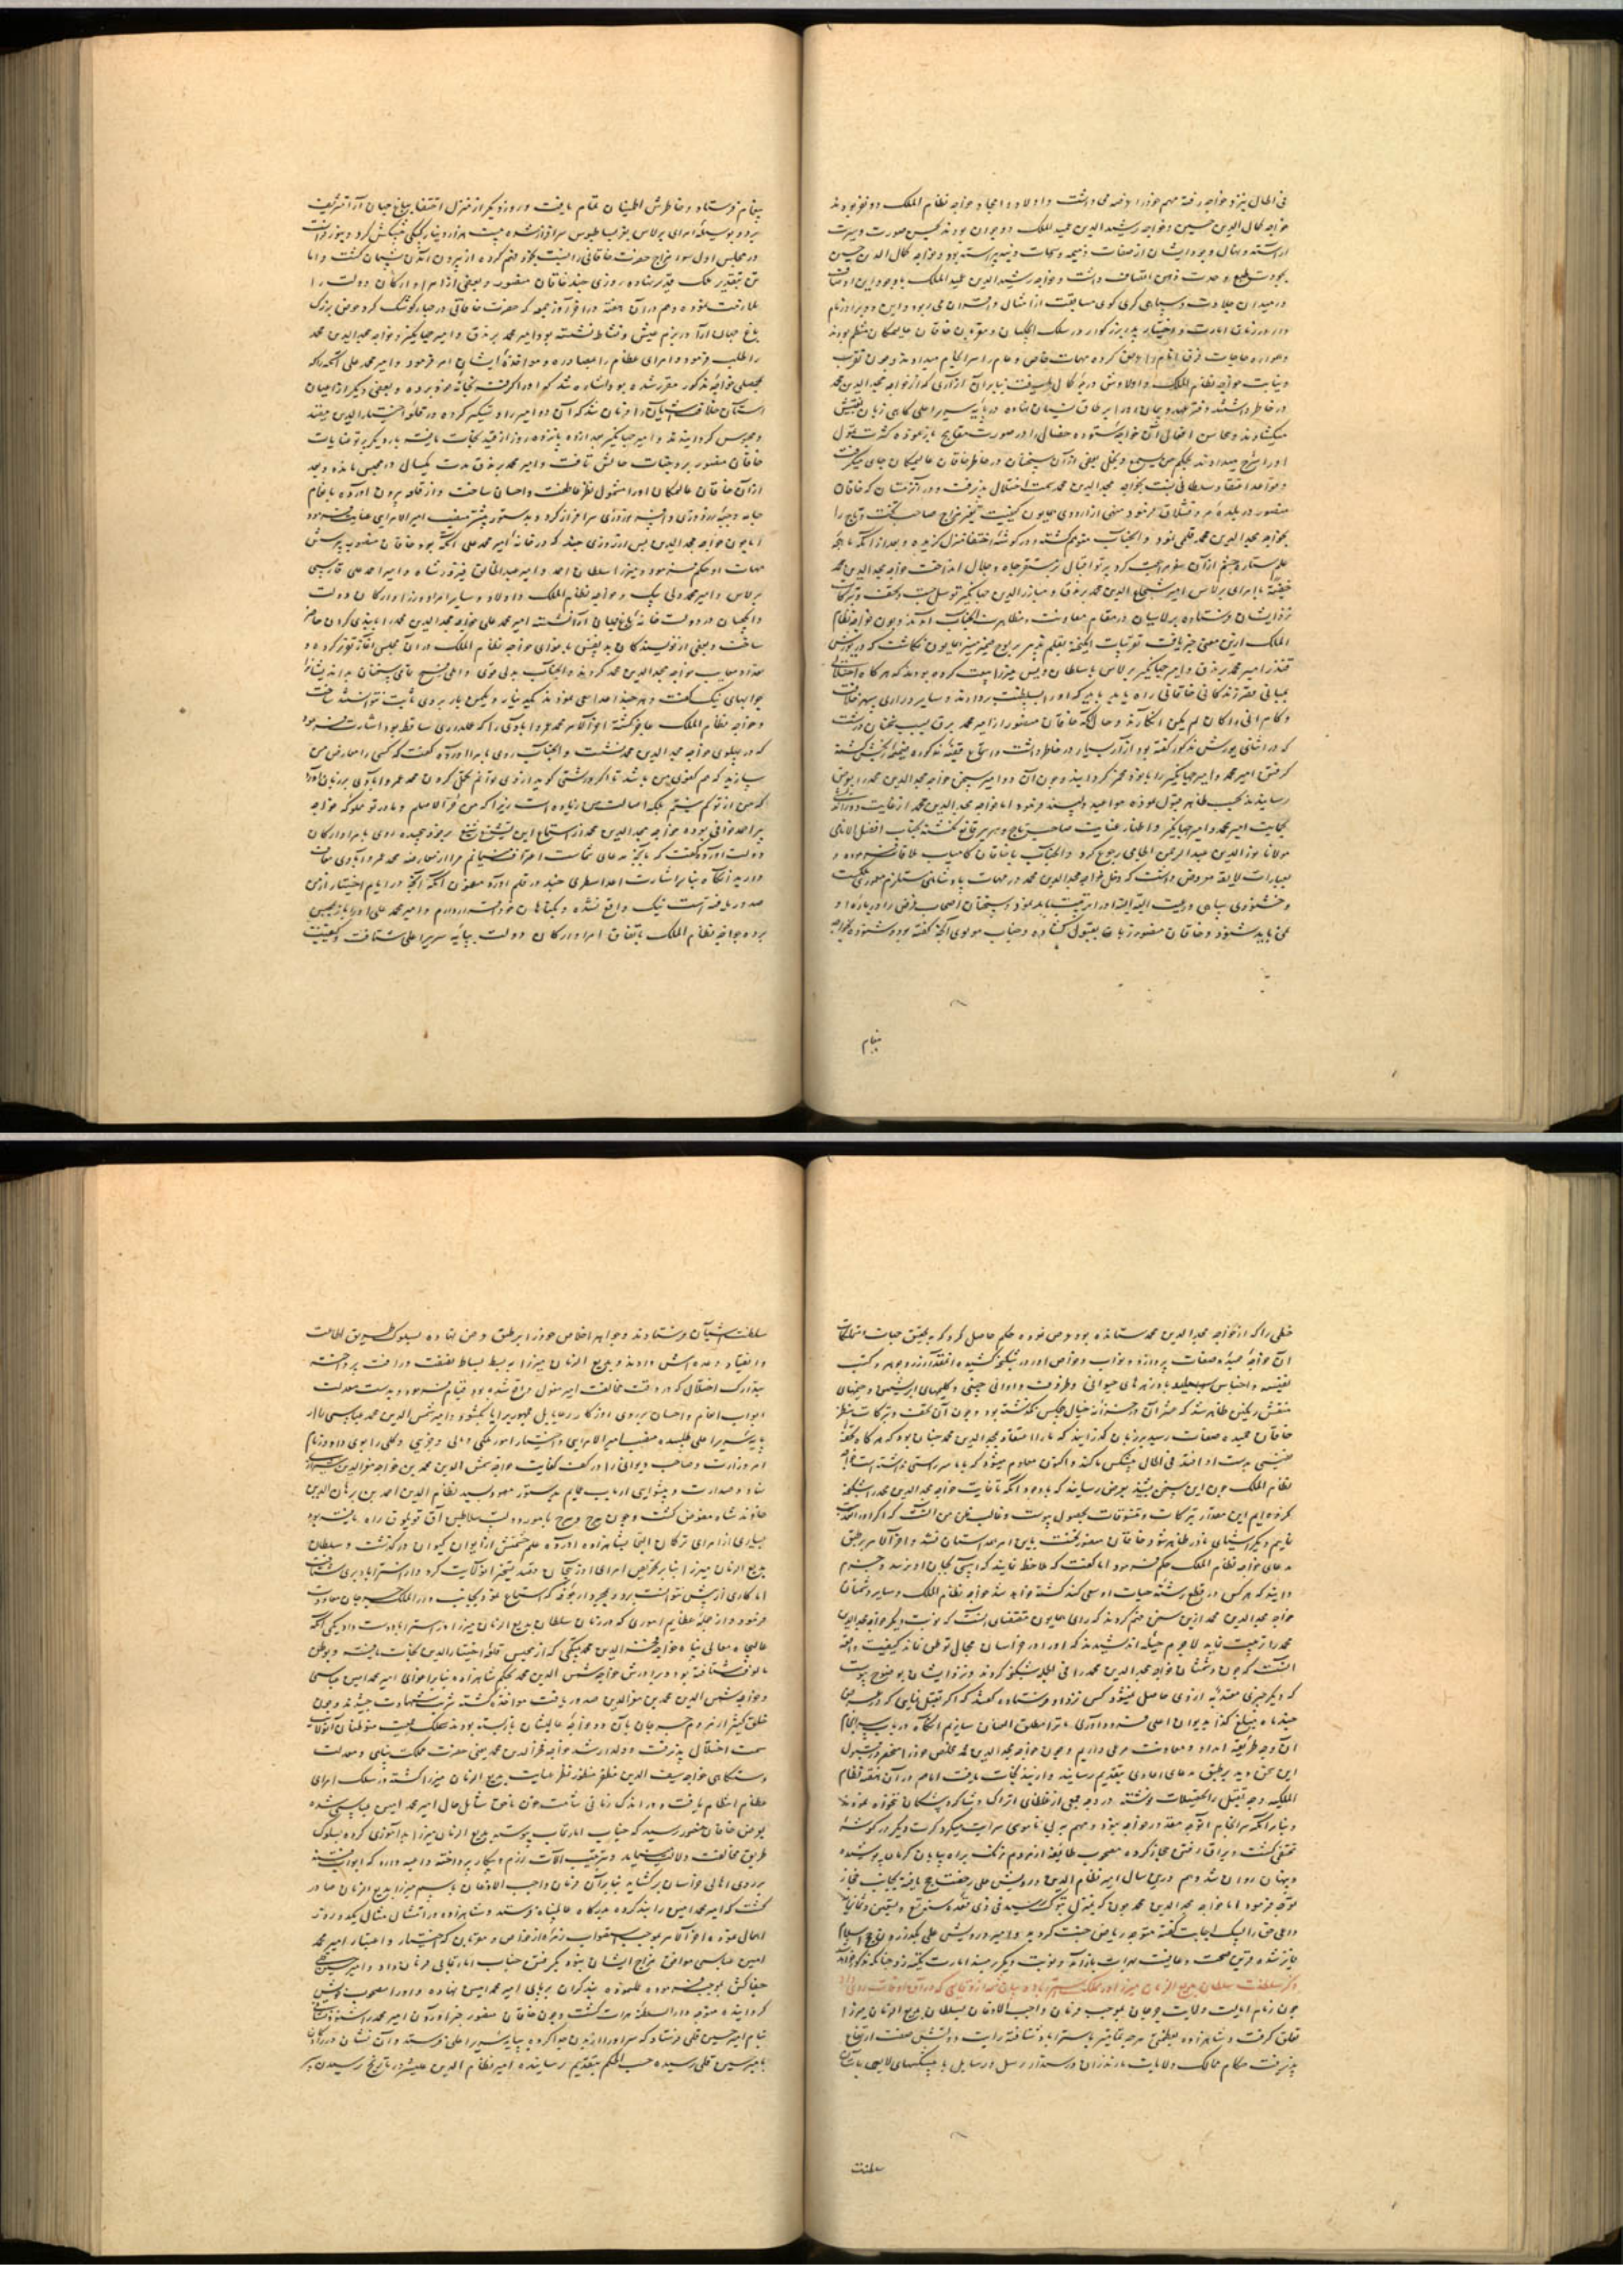 فی الحال بنزد خواجه رفته مهم خود را وعده می داشت و اولاد و امجاد خواجه نظام الملک دو نفر بودند
خواجه کمال الدین حسین و خواجه رشید الدین عمید الملک و دیوان بودند بحسن صورت و سیرت
آراسته و نهال وجود ایشان از صفات ذمیمه و سمات پیراسته بود و خواجه کمال الدین حسین
بجودت طبع و حدت ذهن اتصاف داشت و خواجه رشید الدین عمید الملک با وجود این اوصاف
در میدان جلادت و سپاهی گری گوی مسابقت از امثال و اقران می ربود و این دو برادر نام
دار در زمان امارت و اختیار پدر بزرگوار در سلک ایچکیان و مقربان خاقان عالیمکان منتظم بودند
و همواره حاجات فرق انام را عرض کرده مهمات خاص و عام را سرانجام میدادند و چون تقرب
و نیابت خواجه نظام الملک و اولادش درجه کمال
در خاطر داشتند دفتر عهد و پیمان او را بر طاق نسیان نهاده در پایه سریر اعلی گاهی زبان
میگشادند و محاسن افعال آن خواجه ستوده خصال را در صورت مقابح باز نموده کثرت تمول
او را شرح میدادند بحکم من یسمع یخل بعضی از آن سخنان در خاطر خاقان عالیمکان جای میگرفت
و قواعد اعتقاد سلطانی نسبت بخواجه مجد الدین محمد سمت اختلال پذیرفت و در آن زمستان که خاقان
منصور در بلده مرو قشلاق فرمود منهی از اردوی همایون کیفیت تغیر مزاج صاحب تخت و تاج را
بخواجه مجد الدین محمد قلمی نمود و آنجناب متوهم گشته در گوشه اختفا منزل گزیده و بعد از آنکه ماهچه
علم ستاره حشم از آن سفر مراجعت کرد پرتو اقبال بر مستقر جاه و جلال انداخت خواجه مجد الدین محمد
خفیة بامرای برلاس امیر شجاع الدین محمد برندق و مبارز الدین جهانگیر توسل جسته و تحف و تبرکات
نزد ایشان فرستاده برلاسیان در مقام معاونت و مظاهرت آنجناب آمدند و چون خواجه نظام
الملک از این معنی خبر یافت تقریبات انگیخته بقلم تدبیر بر لوح ضمیر منیر همایون نگاشت که در یورش
قندز امیر محمد برندق و امیر جهانگیر برلاس با سلطان ویس میرزا بیعت کرده بودند که هر گاه اختلالی
بمبانی قصر زندگانی خاقانی راه یابد
و کام انی و ارکان لم یکن انگارند و حال آنکه خاقان منصور از امیر محمد برندق بسبب سخنان درشت
که در اثنای یورش مذکور گفته بود آزار بسیار در خاطر داشت و استماع قضیه مذکوره ضمیمه رنجش گشته
گرفتن امیر محمد و امیر جهانگیر را با خود مخمر گردانید و چون آن دو امیر سخن خواجه مجد الدین محمد را بعرض
رسانیدند بحسب ظاهر قبول نموده مواعید دلپسند فرمود اما خواجه مجد الدین محمد از غایت دوراندیشی
بحمایت امیر محمد و امیر جهانگیر و اظهار عنایت صاحب تاج و سریر قانع نگشته بجناب افضل الانامی
مولانا نور الدین عبد الرحمن الجامی رجوع کرد و آنجناب با خاقان کامیاب ملاقات فرموده
بعبارات لایقه معروض داشت که دخل خواجه مجد الدین محمد در مهمات پادشاهی مستلزم معموری مملکت
و خشنودی سپاهی و رعیت البته البته او را تربیت باید نمود و سخنان اصحاب غرض را در باره او
نمی باید شنود و خاقان منصور زبان بقبول گشاده و جناب مولوی آنچه گفته بود و شنوده بخواجه
پیغام
پیغام فرستاد و خاطرش اطمینان تمام یافت و روز دیگر از منزل اختفا بباغ جهان آرا تشریف
برد و بوسیله امرای برلاس بعز بساط بوس سرافراز شده بیست هزار دینار کپکی پیشکش کرد و هنوز فراست
در مجلس اول سوء مزاج حضرت خاقانی را نسبت بخود فهم کرده از بیرون آمدن پشیمان گشت و اما
تن بتقدیر ملک قدیر نهاده روزی چند خاقان منصور و بعضی از امرا و ارکان دولت را
ملازمت نمود و هم در آن هفته در آخر روز جمعه که حضرت خاقانی در چهار گوشک کرد حوض بزرگ
باغ جهان آرا در بزم عیش و نشاط نشسته بود امیر محمد برندق و امیر جهانگیر و خواجه مجد الدین محمد
را طلب فرمود و امرای عظام را بمصادره و مواخذه ایشان امر فرمود و امیر محمد علی اتکه را که
بمحصلی خواجه مذکور مقرر شده بود اشاره شد که او را گرفته بخانه خود برد و بعضی دیگر از اعیان
آستان خلافت آشیان را فرمان شد که آن دو امیر را دستگیر کرده در قلعه اختیار الدین مقید
و محبوس گردانیدند و امیر جهانگیر بعد از ده پانزده روز از قید نجات یافته بار دیگر پرتو عنایات
خاقان منصور بر وجنات حالش تافت و امیر محمد برندق مدت یکسال در حبس مانده و بعد
از آن خاقان عالیمکان او را مشمول نظر عاطفت و احسان ساخت و از قلعه بیرون آورده بانعام
جامه و چهارقب زردوزی و افسر نوروزی سرافراز کرد و بدستور پیشتر منصب امیر الامرایی عنایت فرمود
اما چون خواجه مجد الدین پس از روزی چند که در خانه امیر محمد علی اتکه بود خاقان منصور بپرسش
مهمات او حکم فرمود و میرزا سلطان احمد و امیر عبد الخالق فیروزشاه و امیر احمد علی فارسی
برلاس و امیر محمد ولی بیک و خواجه نظام الملک و اولاد و سایر امرا و وزرا و ارکان دولت
و ایچکیان در دولت خانه باغ جهان آرا نشسته امیر محمد علی خواجه مجد الدین محمد را با بندی گران حاضر
ساخت و بعضی از نویسندگان بد نفس باغوای خواجه نظام الملک در آن مجلس آغاز تقریر کرده و
تعداد معایب خواجه مجد الدین محمد کردند و آنجناب بدلی قوی و املی فسیح جمیع سخنان بداندیشان را
جوابهای نیک گفت و هر چند اعدا سعی نمودند یک دینار و یکمن بار بر وی ثابت نتوانستند ساخت
و خواجه نظام الملک عاجز گشته آخر الامر محمد عمرو آبادی را که عملداری ساقط بود اشارت فرمود
که در پهلوی خواجه مجد الدین محمد نشست و آنجناب روی بامرا آورده گفت که کسی را معارض من
سازید که هم کفوی من باشد تا اگر درشتی گوید از وی توانم تحمل کردن محمد عمرو آبادی بر زبان آورد
که من از تو کم نیستم بلکه اصالت من زیاده است زیرا که من حر الاصلم و مادر تو مملوکه خواجه
پیر احمد خوافی بوده خواجه مجد الدین محمد از استماع این تشنیع شنیع بر خود پیچیده روی بامرا و ارکان
دولت آورد و گفت که بآنچه مدعای شماست اعتراف مینمایم مرا از معارضه محمد عمرو آبادی معاف
دارید آنگاه بنابر اشارت اعدا سطری چند در قلم آورد مضمون آنکه آنچه در ایام اختیار از من
صدور یافته است نیک واقع نشده و بگناهان خود اقرار دارم و امیر محمد علی او را باز بحبس
برده خواجه نظام الملک باتفاق امرا و ارکان دولت بپایه سریر اعلی شتافت و کیفیت
خطی را که از خواجه مجد الدین محمد ستانده بود عرض نموده حکم حاصل کرد که بتحقیق جهات و تملکات
آن خواجه حمیده صفات پردازد و نواب و خواص او را در شکنجه کشیده آنمقدار زر و جوهر و کتب
نفیسه و اجناس با زهر های حیوانی و ظروف و اوانی چینی و گلیمهای ابریشمین و خیمهای
منقش رنگین ظاهر شد که عشر آن در خزانه خیال هیچکس نگذشته بود و چون آن تحف و تبرکات بنظر
خاقان حمیده صفات رسید بر زبان گذرانید که ما را اعتقاد بمجد الدین محمد چنان بود که هر گاه تحفه
نفیسی بدست او افتد فی الحال پیشکش ما کند و اکنون معلوم میشود که با ما سر راستی نداشته است خواجه
نظام الملک چون این سخن شنید بعرض رسانید که با وجود آنکه تا غایت خواجه مجد الدین محمد را شکنجه
نکرده ایم این مقدار تبرکات و تنسوقات بحصول پیوست و غالب ظن من آنست که اگر او را تعذیب
نماییم دیگر اشیای نادر ظاهر شود خاقان منصور نخست باین امر همداستان نشد و آخر الامر بر طبق
مدعای خواجه نظام الملک حکم فرمود اما گفت که ملاحظه نمایند که آسیبی بجان او نرسد و جزم
دانند که هر کس در قطع رشته حیات او سعی کند کشته خواهد شد خواجه نظام الملک و سایر دشمنان
خواجه مجد الدین محمد از این سخن جزم کردند که رای همایون مقتضی آنست که نوبت دیگر خواجه مجد الدین
محمد را تربیت نماید لاجرم حیله اندیشیدند که او را در خراسان مجال توطن نماند کیفیت واقعه
آنست که چون دشمنان خواجه مجد الدین محمد را فی الجمله شکنجه کردند و نزد ایشان بوضوح پیوست
که دیگر چیزی معتد به از وی حاصل نمیشود کس نزد او فرستاده گفتند که اگر تقبل نمایی که در عرض
چند ماه مبلغ کذا بدیوان اعلی فرود آوری ما ترا مطلق العنان سازیم آنگاه در باب سرانجام
آن وجه طریقه امداد و معاونت مرعی داریم و چون خواجه مجد الدین محمد مخلص خود را منحصر در قبول
این سخن دید بر طبق مدعای اعادی بتقدیم رسانید و از بند نجات یافت اما هم در آن هفته نظام
الملکیه وجه تقبل را بتحصیلات نوشته در وجه جمعی از غلاظان اتراک و شاگرد پیشگان تنخواه نمودند
و بنابر آنکه سرانجام آن وجه مقدور خواجه نبود و مهم به بی ناموسی سرایت میکرد کرت دیگر در گوشه
مختفی گشت و یراق رفتن حجاز کرده مصحوب طایفه از مردم ترک براه بیابان کرمان پوشیده
و پنهان روان شد و هم درین سال امیر نظام الدین درویش علی رخصت حج یافته بجانب حجاز
توجه فرمود اما خواجه مجد الدین محمد چون بمنزل تبوک رسید فی ذی قعده سنه تسع و تسعین و ثمانمایه
داعی حق را لبیک اجابت گفته متوجه ریاض جنت گردید و امیر درویش علی بگذاردن حج اسلام
فایز شده قرین صحت و عافیت بهرات باز آمد و نوبت دیگر بر مسند امارت تکیه زد چنانکه مذکور خواهد
ذکر سلطنت سلطان بدیع الزمان میرزا در مملکت استراباد و بیان بعضی از وقایعی که در آن اوقات روی داد
چون زمام ایالت ولایت جرجان بموجب فرمان واجب الاذعان بسلطان بدیع الزمان میرزا
تعلق گرفت و شاهزاده بعظمتی هر چه تمامتر باستراباد شتافته رایت دولتش صفت ارتفاع
پذیرفت حکام ممالک و ولایات مازندران و رستمدار رسل و رسایل با پیشکشهای لایق بآستان
سلطنت
سلطنت آشیان فرستادند و جواهر اخلاص خود را بر طبق عرض نهاده بسلوک طریق اطاعت
و انقیاد وعده اش دادند و بدیع الزمان میرزا به بسط بساط نصفت و رافت پرداخته
بتدارک اختلالی که در وقت مخالفت امیر مغول واقع شده بود قیام فرمود و بدست معدلت
ابواب انعام و احسان بر روی روزگار رعایا بل جمهور برایا بگشود و امیر شمس الدین محمد عباسی را از
پایه سریر اعلی طلبیده منصب امیر الامرایی و اختیار امور ملکی و مالی و جزوی و کلی را بوی داد و زمام
امر وزارت و صاحب دیوانی را در کف کفایت خواجه شمس الدین محمد بن خواجه معز الدین شیرازی
نهاد و صدارت و پیشوایی ارباب عمایم بدستور معهود بسید نظام الدین احمد بن برهان الدین
خاوند شاه مفوض گشت و چون هرج و مرج بامور دولت سلاطین آق قوینلو راه یافته بود
بسیاری از امرای ترکمان التجا بشاهزاده آورده علم حشمتش از ایوان کیوان درگذشت و سلطان
بدیع الزمان میرزا بنابر تحریض امرای آذربیجان قصد تسخیر آن ولایت کرد و از استراباد بری شتافت
اما کاری از پیش نتوانست برد
فرمود و از جمله عظایم اموری که در زمان سلطان بدیع الزمان میرزا در استراباد دست داد یکی آنکه
عالیجاه معالی پناه خواجه فخر الدین محمد بتکچی که از حبس قلعه اختیار الدین نجات یافته و بوطن
مالوف شتافته بود و برادرش خواجه شمس الدین محمد بحکم شاهزاده بنابر اغوای امیر محمد امین عباسی
و خواجه شمس الدین محمد بن معز الدین صدور یافت مواخذ گشته شربت شهادت چشیدند و چون
خلق کثیر از مردم جرجان بآن دو خواجه عالیشان بازبسته بودند سلک جمعیت متوطنان آنولایت
سمت اختلال پذیرفت و ولد ارشد خواجه فخر الدین محمد یعنی حضرت مملکت پناهی و معدلت
دستگاهی خواجه سیف الدین مظفر منظور نظر عنایت بدیع الزمان میرزا گشته در سلک امرای
عظام انتظام یافت و در اندک زمانی شامت خون ناحق شامل حال امیر محمد امین عباسی شده
بعرض خاقان منصور رسید که جناب امارتماب پیوسته بدیع الزمان میرزا را بدآموزی کرده بسلوک
طریق مخالفت دلالت مینماید و بترتیب آلات رزم و پیکار پرداخته داعیه دارد که ابواب فتنه
بر روی اهالی خراسان بگشاید بنابر آن فرمان واجب الاذعان باسم میرزا بدیع الزمان صادر
گشت که امیر محمد امین را بند کرده بدرگاه عالمپناه فرستد و شاهزاده در امتثال مثال یکدو روز
اهمال نموده آخر الامر بموجب استصواب زمره از خواص و مقربان که اختیار و اعتبار امیر محمد
امین عباسی موافق مزاج ایشان نبود بگرفتن جناب امارتمابی فرمان داد و امیر شیخ
جفاکش بموجب فرموده عمل نموده بند گران بر پای امیر محمد امین نهاده و او را مصحوب خویش
گردانیده متوجه دارالسلطنه هرات گشت و چون خاقان منصور خبر آوردن امیر محمد را شنود نشانی
بنام امیر حسین قلی فرستاد که سر او را از بدن جدا کرده بپایه سریر اعلی فرستد و آن نشان در راه
بامیر حسین قلی رسیده حسب الحکم بتقدیم رسانیده امیر نظام الدین علیشیر در تاریخ رسیدن سر